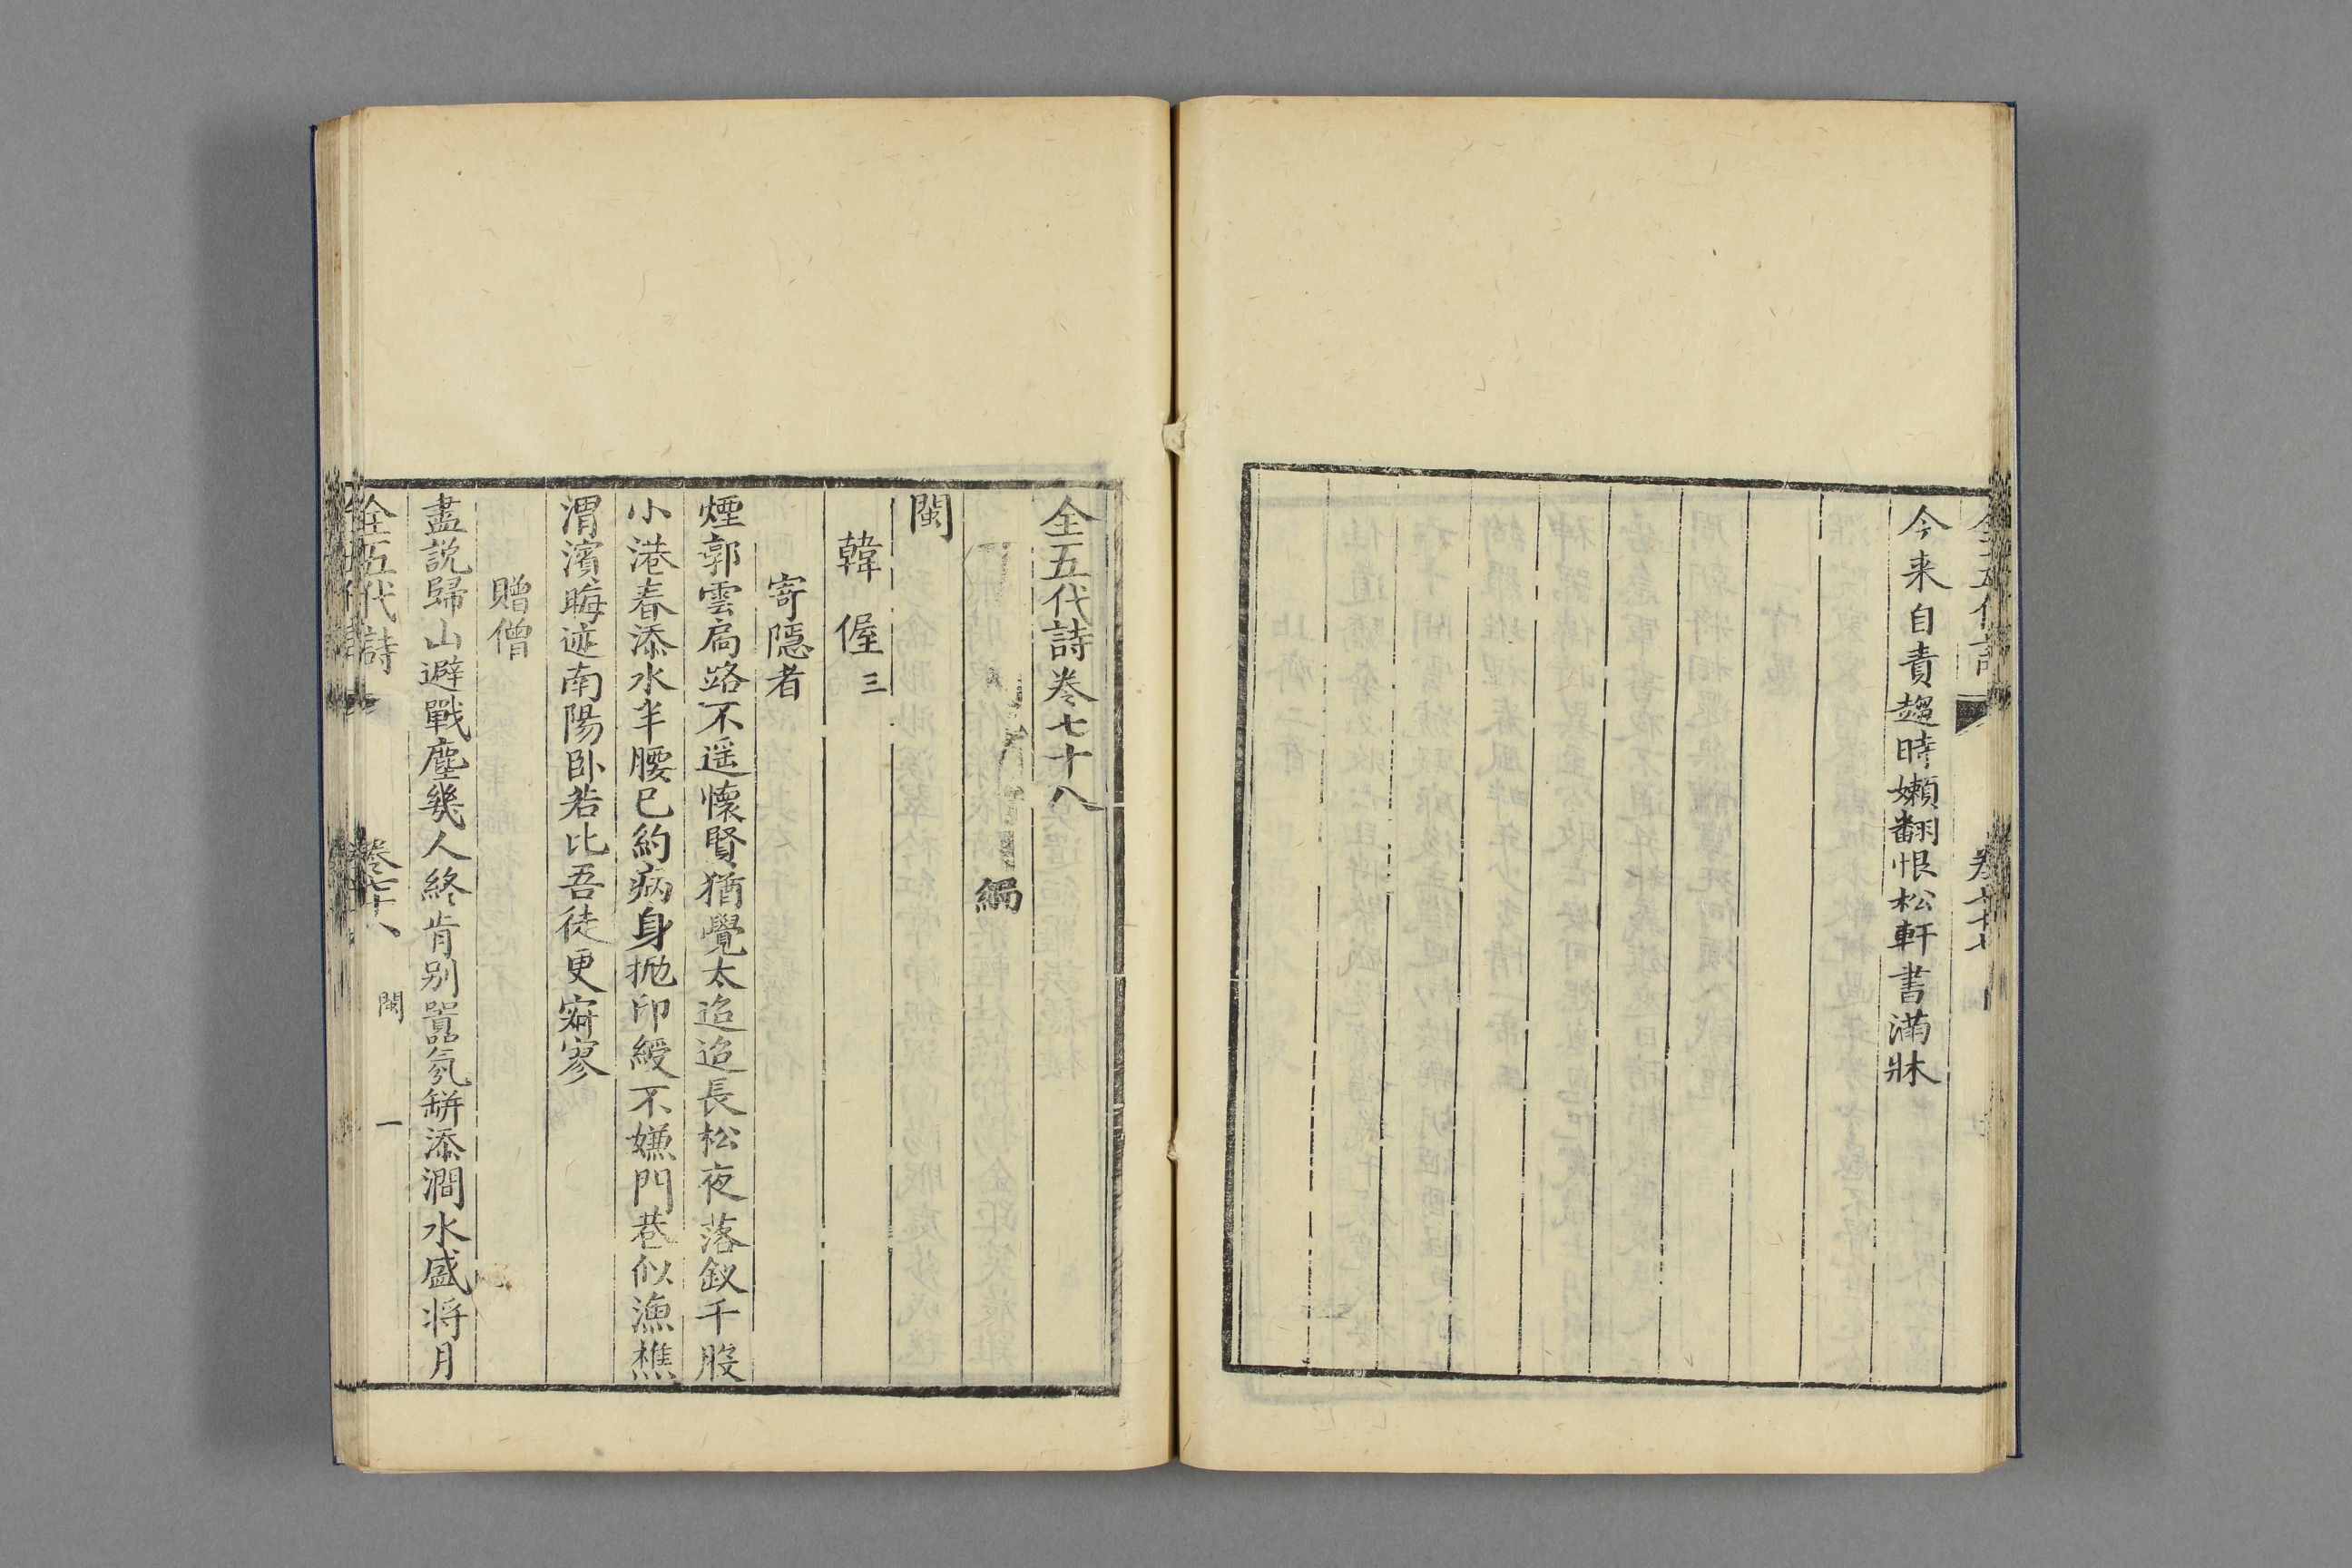 今来自責趨時嬾翻恨松軒書滿牀
卷七十七
全五代詩卷七十八
編
閩
韓偓三
寄隱者
煙郭雲扃路不遥懷賢猶覺太迢迢長松夜落釵千股
小港春添水半腰已約病身抛印綬不嫌門巷似漁樵
渭濱晦迹南陽卧若比吾徒更寂寥
贈僧
盡説歸山避戰塵幾人終肯别囂氛缾添澗水盛将月
全五代詩 卷七十八 閩 一